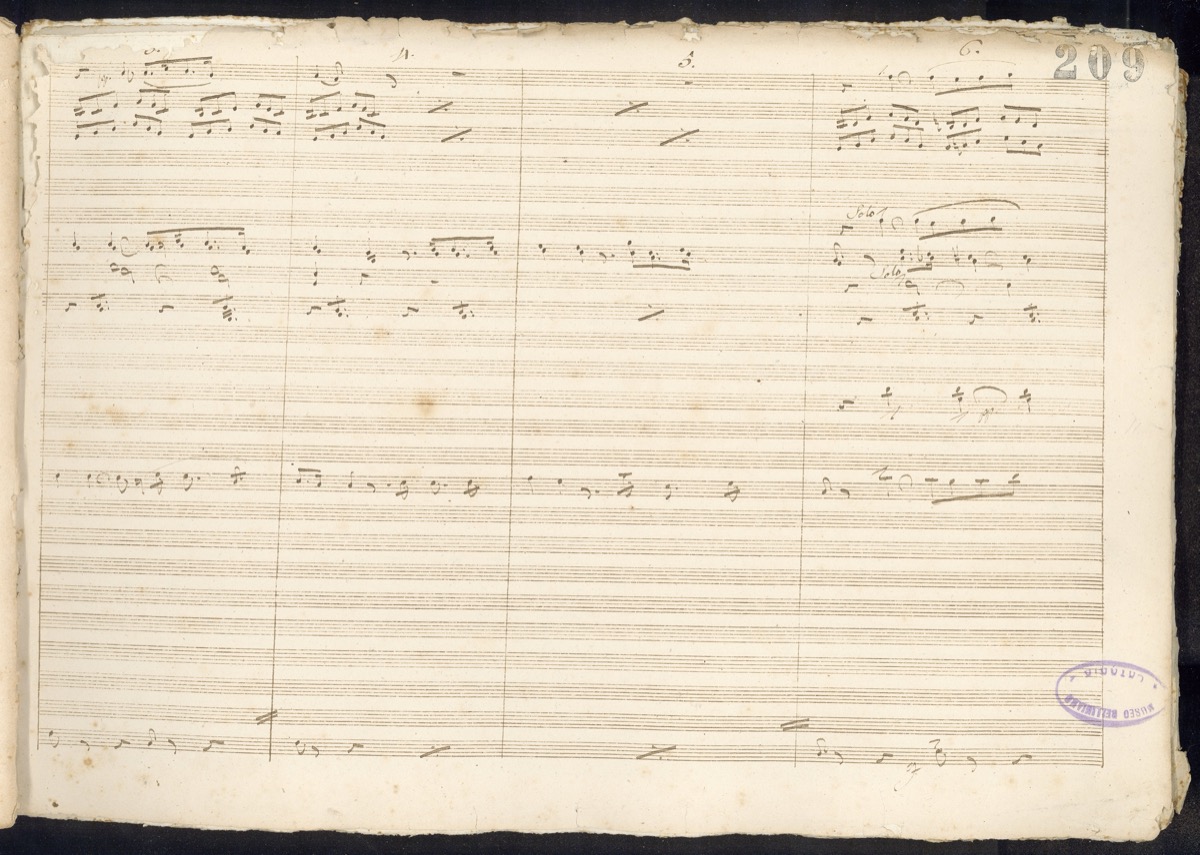 3. 4. 5. 6.
209
Solo
Solo
MUSEO BELLINIANO
* CATANIA *